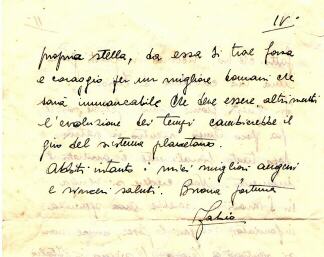 IV°
propria stella, da essa si trae forza
e coraggio per un migliore domani che
sarà immancabile che deve essere altrimenti
l'evoluzione dei tempi cambierebbe il
giro del sistema planetario.
Abbiti intanto i miei migliori auguri
e sinceri saluti. Buona fortuna
Fabio